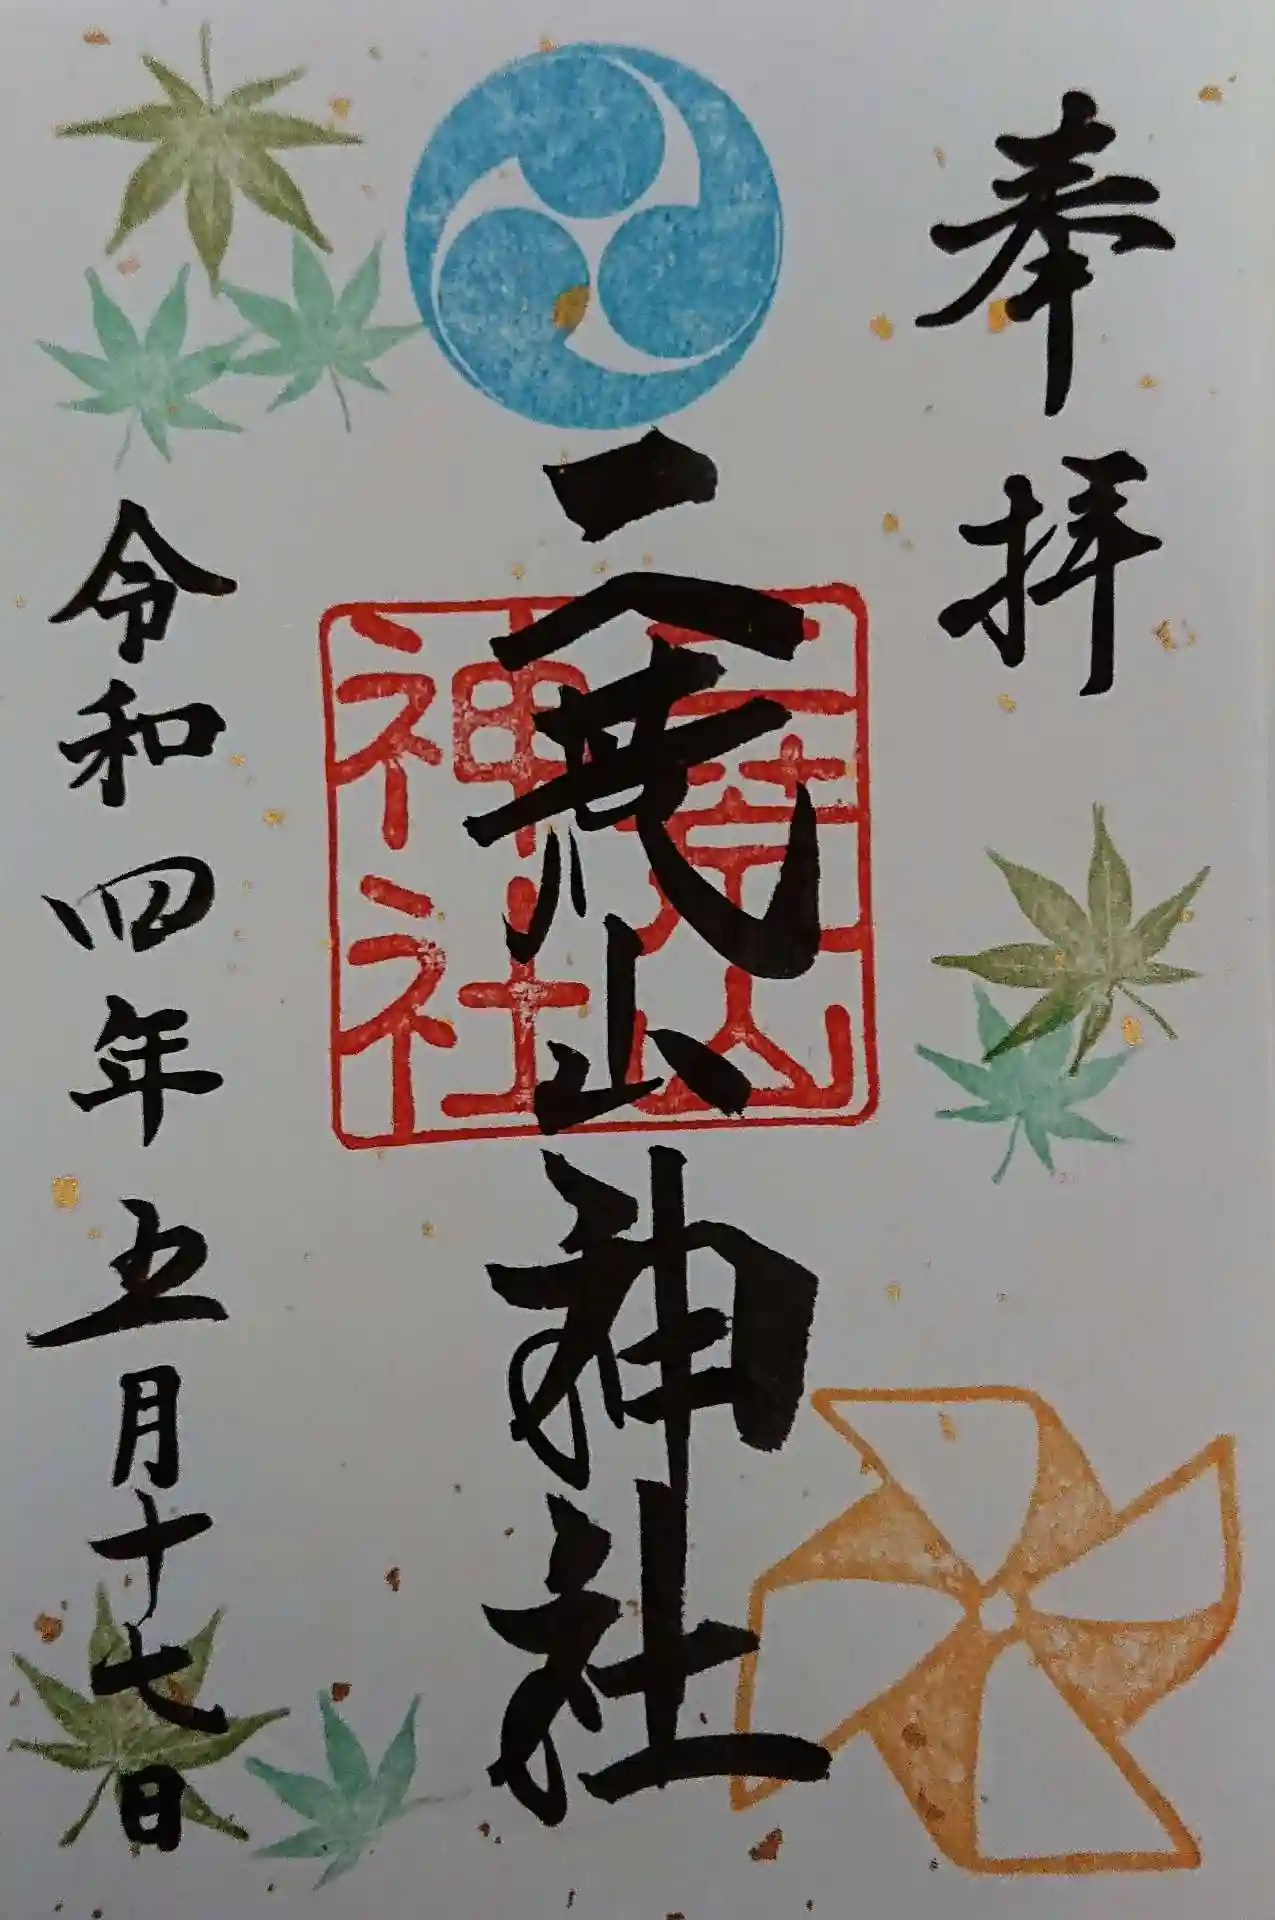 奉拝
二荒山神社
令和四年五月十七日
二荒山
神社